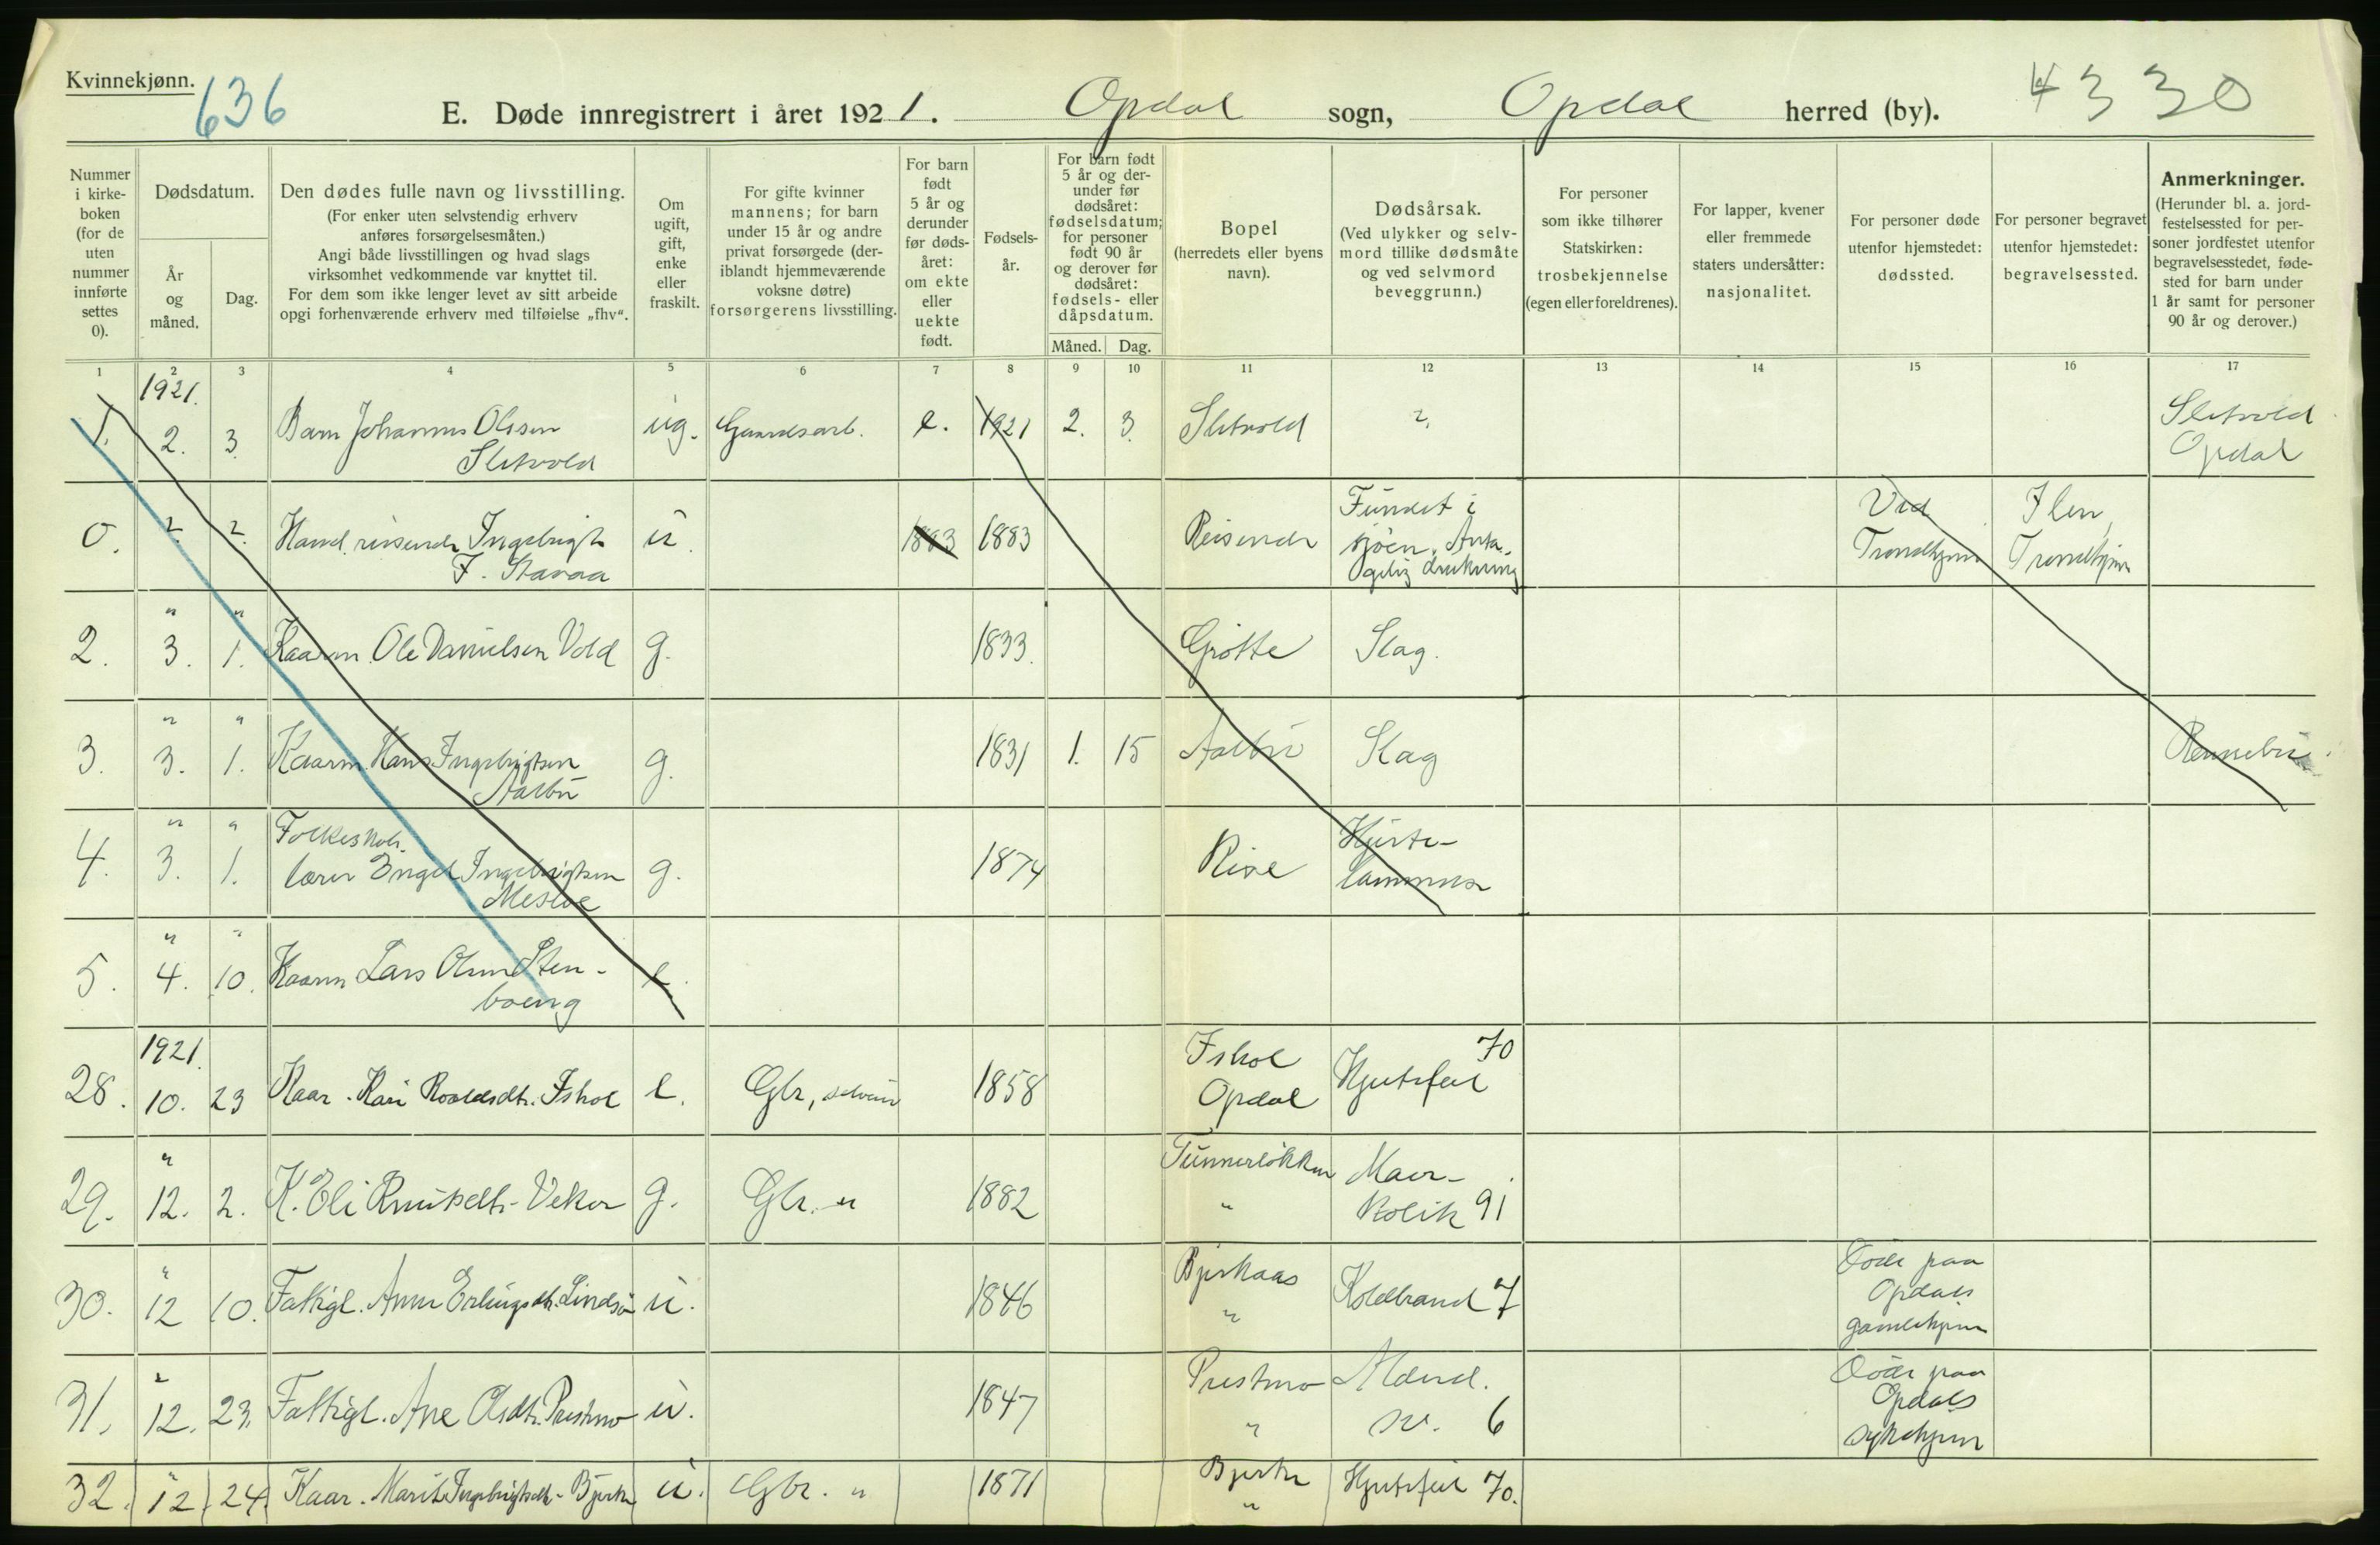 Kvinnekjønn.
636
E. Døde innregistrert i året 1921. Opdal sogn, Opdal herred (by). 4330
Nummer i kirkeboken (for de uten nummer innførte settes 0).
Dødsdatum.
År og måned.
Dag.
Den dødes fulle navn og livsstilling.
(For enker uten selvstendig erhverv
anføres forsørgelsesmåten.)
Angi både livsstillingen og hvad slags
virksomhet vedkommende var knyttet til.
For dem som ikke lenger levet av sitt arbeide
opgi forhenværende erhverv med tilføielse „fhv“.
Om ugift, gift, enke eller fraskilt.
For gifte kvinner
mannens; for barn
under 15 år og andre
privat forsørgede (der-
iblandt hjemmeværende
voksne døtre)
forsørgerens livsstilling.
For barn født 5 år og derunder før døds-året: om ekte eller uekte født.
Fødsels-år.
For barn født
5 år og der-
under før
dødsåret:
fødselsdatum;
for personer
født 90 år
og derover før
dødsåret:
fødsels- eller
dåpsdatum.
Måned. Dag.
Bopel
(herredets eller byens
navn).
Dødsårsak.
(Ved ulykker og selv-
mord tillike dødsmåte
og ved selvmord
beveggrunn.)
For personer
som ikke tilhører
Statskirken:
trosbekjennelse
(egen eller foreldrenes).
For lapper, kvener
eller fremmede
staters undersåtter:
nasjonalitet.
For personer døde
utenfor hjemstedet:
dødssted.
For personer begravet
utenfor hjemstedet:
begravelsessted.
Anmerkninger.
(Herunder bl. a. jord-
festelsessted for per-
soner jordfestet utenfor
begravelsesstedet, føde-
sted for barn under
1 år samt for personer
90 år og derover.)
1 2 3 4 5 6 7 8 9 10 11 12 13 14 15 16 17
1921.
1. 2. 3. Barn Johannes Olsen Sletvold ug. Gaardsarb. e. 1921 2. 3. Sletvold ? Sletvold Opdal
0. ? ?. Hand. reisende Ingebrigt F. Stavaa u. 1883 1883 Reisende Fundet i sjøen. Anta- gelig drukning Ved Trondhjem Ilen, Trondhjem
2. " 3. " 1. Kaarm. Ole Danielsen Vold g. 1833. Grøtte Slag.
3. " 3. " 1. Kaarm. Hans Ingebrigtsen Aalbu g. 1831 1. 15 Aalbu Slag Rennebu
4. " 3. " 1. Folkeskole- lærer Engel Ingebrigtsen Mesloe g. 1874 Rise Hjerte- lammelse
5. " 4. " 10. Kaarm Lars Olsen Sten- boeng e.
1921.
28. 10. 23 Kaar. Kari Roaldsdtr. Ishol e. Gbr, selveier 1858 Ishol Opdal Hjertefeil 70
29. " 12. 2. K. Eli Knutsdtr. Veker g. Gbr. " 1882 Tunnerløkken " Mave- kolik 91
30. " 12 10. Fattigl. Anne Erlingsdtr. Lindsø u. 1846 Bjerkaas " Koldbrand 7 Døde paa Opdals gamlehjem
31. " 12. 23. Fattigl. Ane Olsdtr. Prestmo u. 1847 Prestmo " Alderd. sv. 6 Døde paa Opdals sykehjem
32. " 12. 24. Kaar. Marit Ingebrigtsdtr. Bjerke u. Gbr. " 1871 Bjerke " Hjertefeil 70.